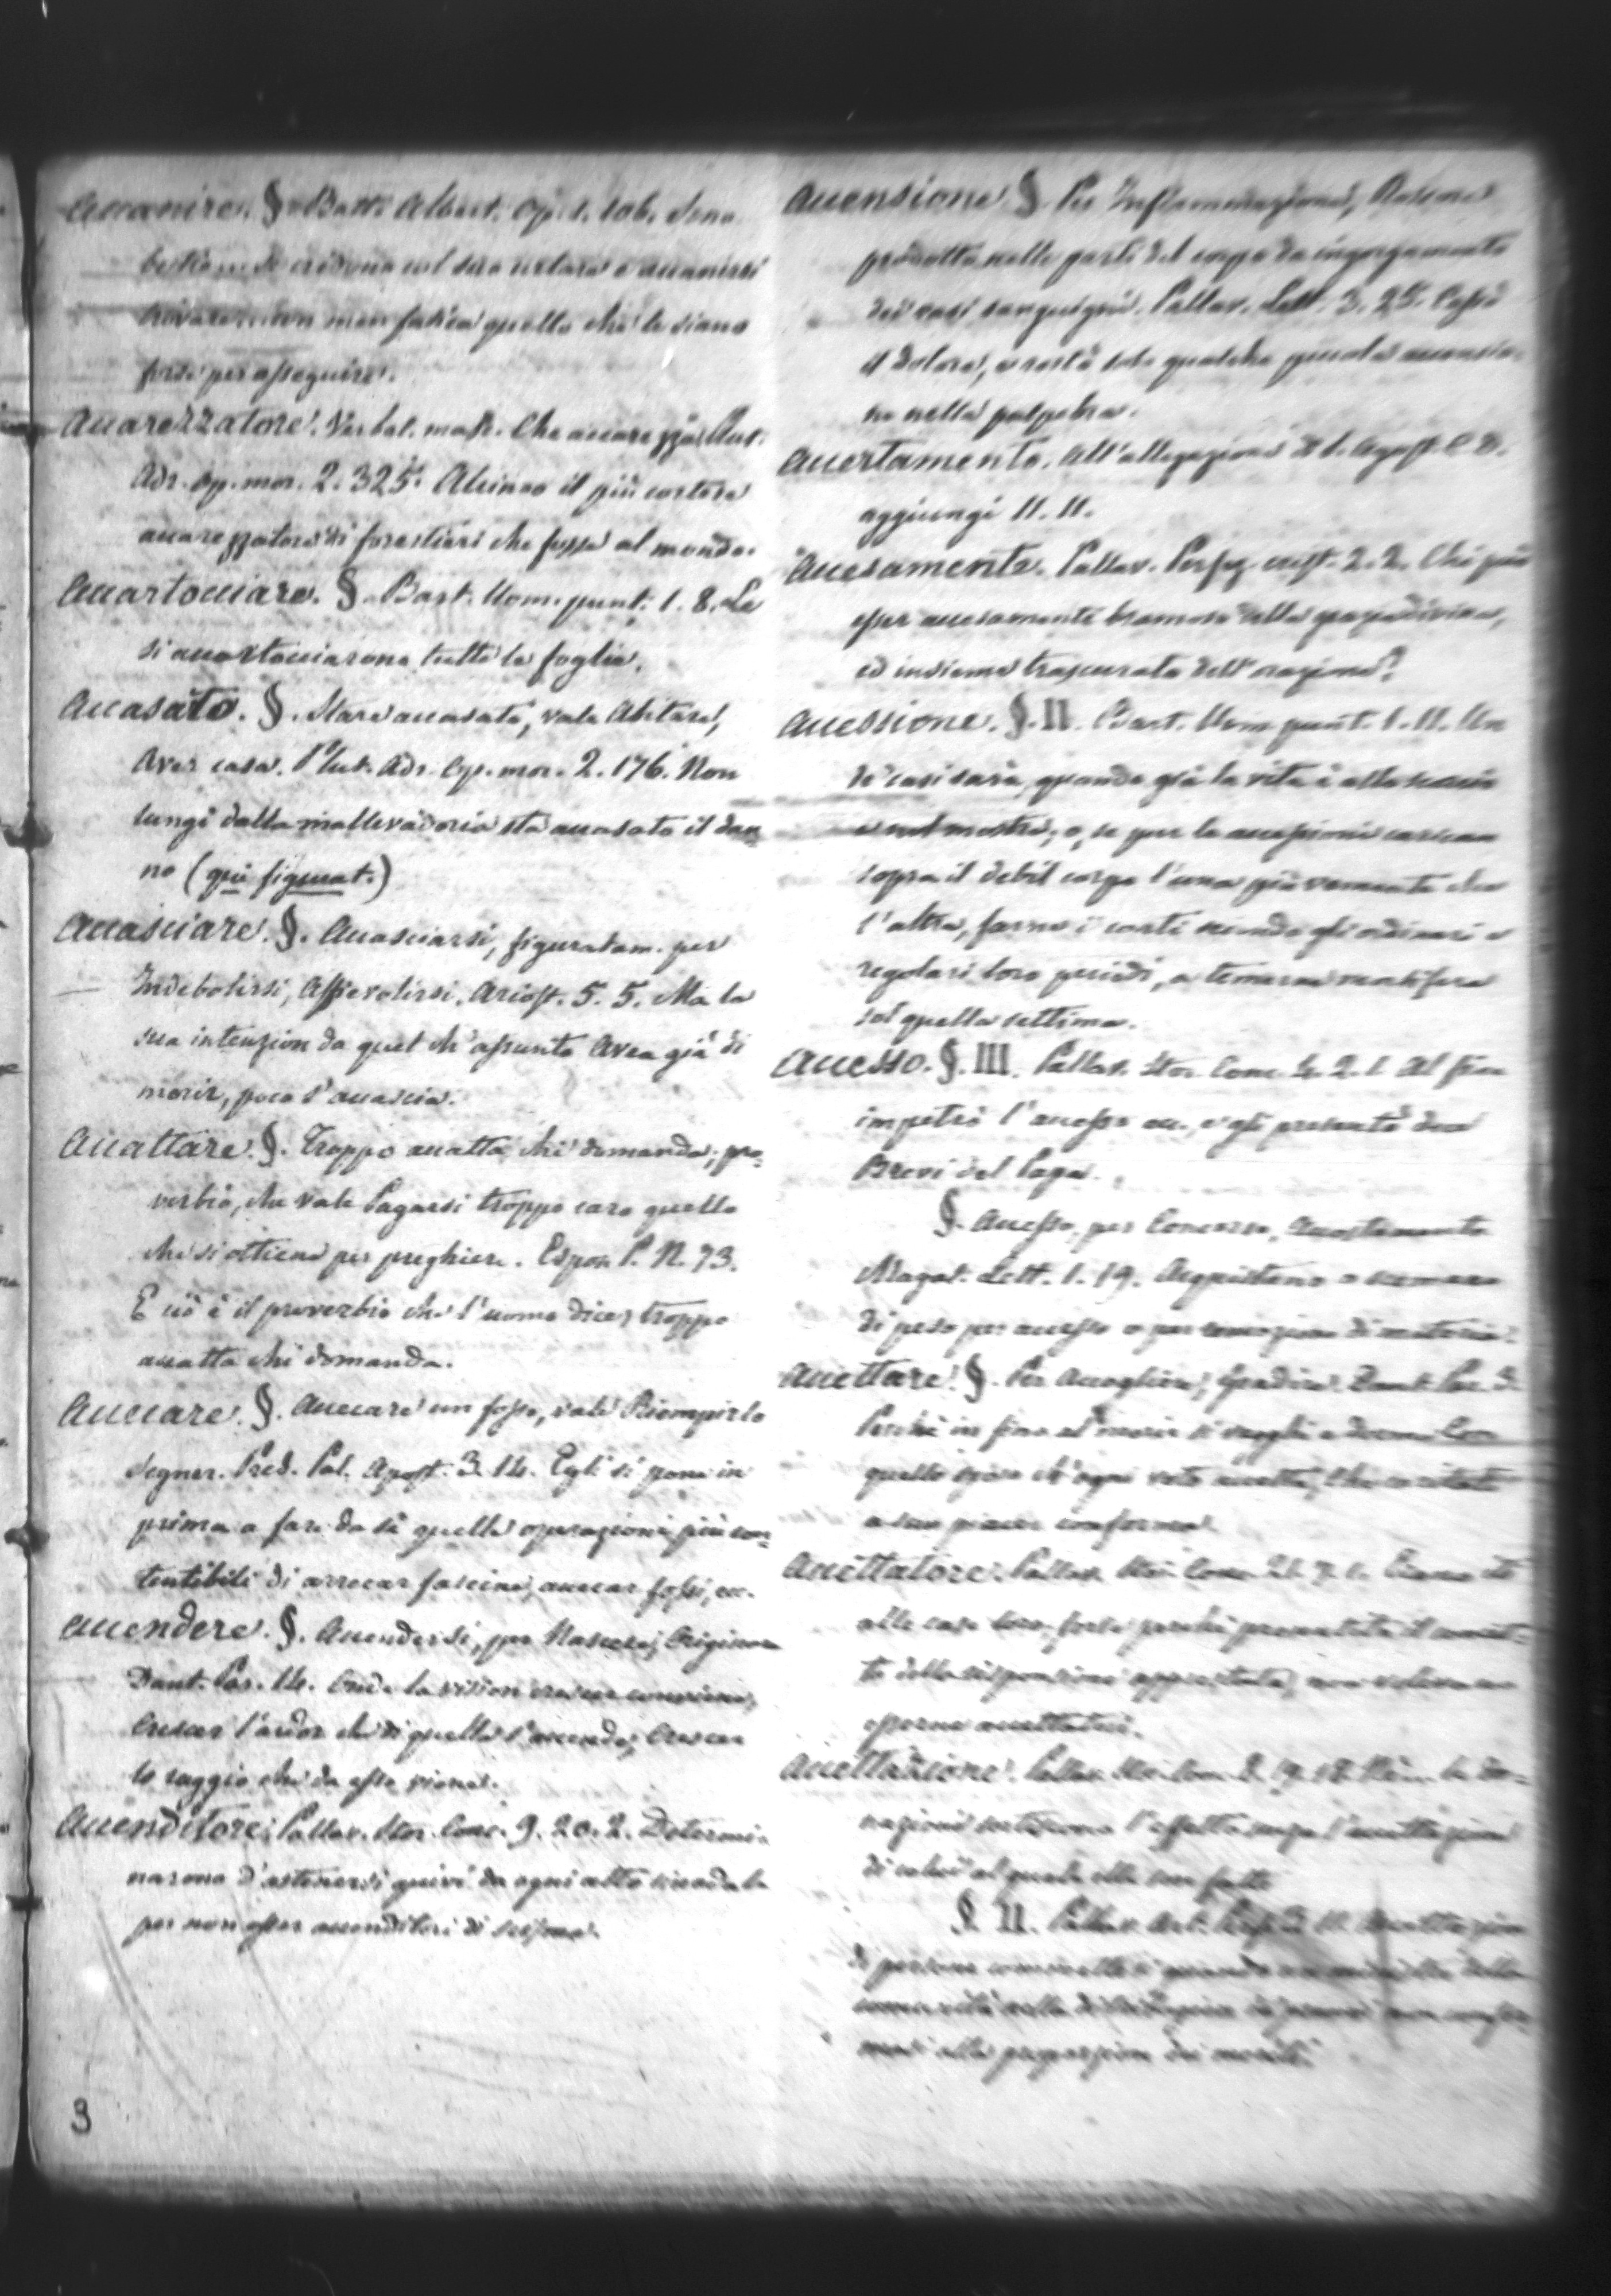 Accanire. §. Batt. Albert. Op. 1. 106. Sono
bestie se credono col suo urtare e accanirsi
trovare con men fatica quello che le siano
forse per asseguire.
Accarezzatore. Verbal. masc. Che accarezza. Plut.
Adr. Op. mor. 2. 325. Alcinoo il più cortese
accarezzatore di forestieri che fosse al mondo.
Accartocciare. §. Bart. Uom. punt. 1. 8. Le
si accartocciarono tutte le foglie.
Accasato. §. Stare accasato, vale Abitare,
Aver casa. Plut. Adr. Op. mor. 2. 176. Non
lungi dalla mallevadoria sta accasato il dan-
no (qui figurat.)
Accasciare. §. Accasciarsi, figuratam. per
Indebolirsi, Affievolirsi. Ariost. 5. 5. Ma la
sua intenzion da quel ch'assunto Avea già di
morir, poco s'accascia.
Accattare. §. Troppo accatta chi domanda; pro-
verbio, che vale Pagarsi troppo caro quello
che si ottiene per preghiere. Espos. P. N. 73.
E ciò è il proverbio che l'uomo dice, troppo
accatta chi domanda.
Accecare. §. Accecare un fosso, vale Riempirlo
Segner. Pred. Pal. Apost. 3. 14. Egli si pone in
prima a fare da sè quelle operazioni più con-
tentibili di arrecar fascine, accecar fossi, ec.
Accendere. §. Accendersi, per Nascere, Originare
Dant. Par. 14. Onde la vision crescer conviene,
Crescer l'ardor che di quella s'accende, Crescer
lo raggio che da esso viene.
Accenditore. Pallav. Stor. Conc. 9. 20. 2. Determi-
narono d'astenersi quivi da ogni atto
per non esser accenditori di scisma.
3
Accensione §. Per Infiammazione, Rossore
prodotta nelle parti del corpo da ingorgamento
dei vasi sanguigni. Pallav. Lett. 3. 25. Cessò
il dolore, e restò solo qualche piccola accensio-
ne nella palpebra.
Accertamento. All'allegazione di S. Agost. C. D.
aggiungi 11. 11.
Accesamente. Pallav. Perfez. crist. 2. 2. Chi può
esser accesamente bramoso della grazia divina,
ed insieme trascurato dell'orazione?
Accessione. §. II. Bart. Uom. punt. 1. 11. Un
de' casi sarà, quando già la vita è allo
e nol mostri; o, se pur le accessioni carican
sopra il debil corpo l'una più veemente che
l'altra, farne i conti secondo gli ordinari e
regolari loro periodi, e temerne mortifera
sol quella settima.
Accesso. §. III. Pallav. Stor. Conc. 4. 2. 1. Al fine
impetrò l'accesso ec., e gli presentò due
Brevi del Papa.
§. Accesso, per Concorso, Accostamento
Magal. Lett. 1. 19. Acquistano o scemano
di peso per accesso o per remozione di materia.
Accettare. §. Per Accogliere, Gradire. Dant. Par. 3.
Perchè in fino al morir si vegghi e dorma Con
quello sposo ch'ogni voto accetta, Che caritate
a suo piacer conforma.
Accettatore. Pallav. Stor. Conc. 21. 7. 1. Erano iti
alle case loro, forse perchè
te della disposizione apprestata, non volevano
esserne accettatori.
Accettazione. Pallav. Stor. Conc. 2. 19.
nazioni sortiscono l'effetto senza l'accettazione
di colui al quale elle son fatte
§. II. Pallav. Art. Perf.
di persone